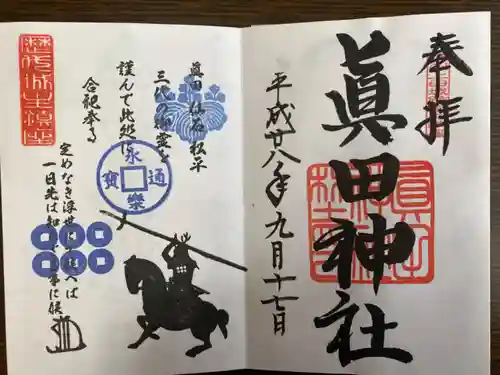 奉拝
眞田神社
平成廿八年九月十七日
眞田 仙石 松平
三代の神霊を
謹んで此処に
合祀奉る
永樂通寳
定めなき浮世にて候へば
一日先は知れざる事に候